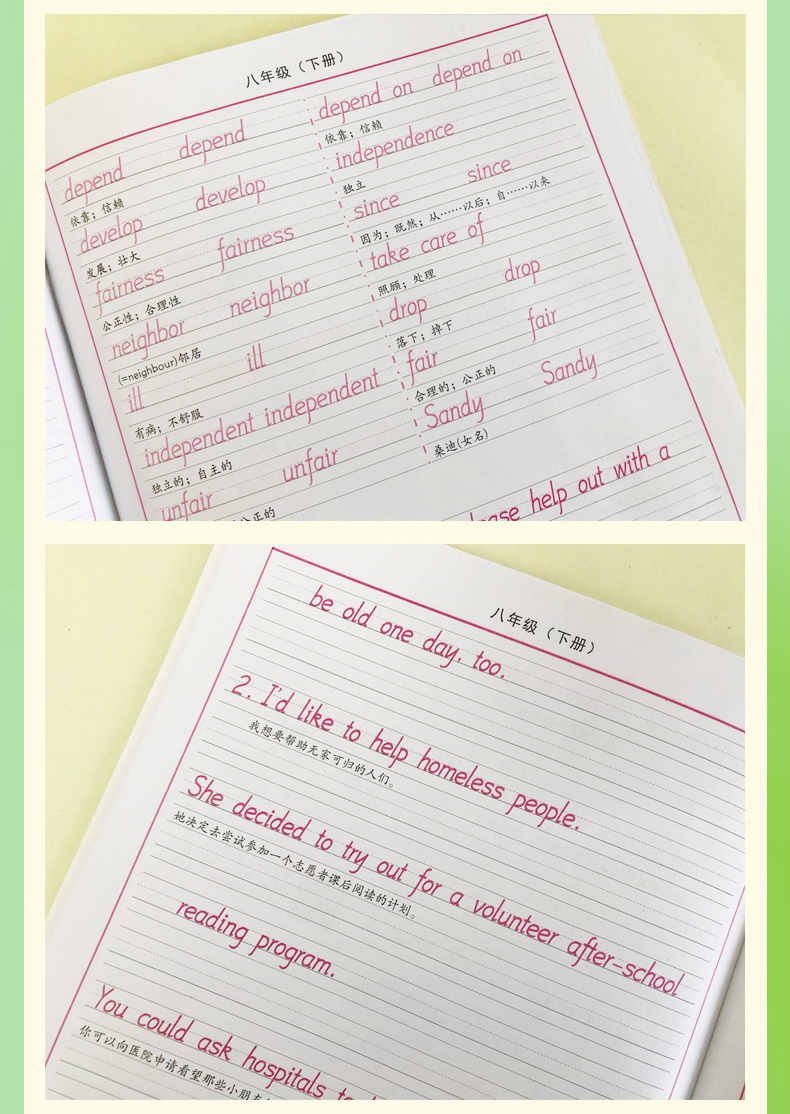 八年级（下册）
depend depend
依靠；信赖
develop develop
发展；壮大
fairness fairness
公正性；合理性
neighbor neighbor
(=neighbour)邻居
ill ill
有病；不舒服
independent independent
独立的；自主的
unfair unfair
公正的
depend on depend on
依靠；信赖
independence
独立
since since
因为；既然；从……以后；自……以来
take care of
照顾；处理
drop drop
落下；掉下
fair fair
合理的；公正的
Sandy Sandy
桑迪(女名)
help out with a
八年级（下册）
be old one day, too.
2. I'd like to help homeless people.
我想要帮助无家可归的人们。
She decided to try out for a volunteer after-school
她决定去尝试参加一个志愿者课后阅读的计划。
reading program.
You could ask hospitals
你可以向医院申请看望那些小朋友